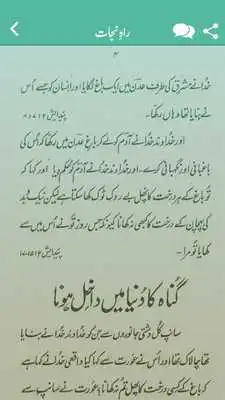 راہِ نجات
۳
خدا نے مشرق کی طرف عدن میں ایک باغ لگایا اور انسان کو جسے اُس
نے بنایا تھا وہاں رکھا۔
اور خداوند خدا نے آدم کو لے کر باغِ عدن میں رکھا کہ اُس کی
باغبانی اور نگہبانی کرے۔ اور خداوند خدا نے آدم کو حکم دیا اور کہا کہ
تو باغ کے ہر درخت کا پھل بے روک ٹوک کھا سکتا ہے لیکن نیک و بد
کی پہچان کے درخت کا کبھی نہ کھانا کیونکہ جس روز تو نے اُس میں سے
کھایا تو مرا۔ پیدایش ۲:۱۵-۱۷
گناہ کا دُنیا میں داخل ہونا
سانپ کُل دشتی جانوروں سے جن کو خداوند خدا نے بنایا
تھا چالاک تھا اور اُس نے عورت سے کہا کیا واقعی خدا نے کہا ہے
کہ باغ کے کسی درخت کا پھل تم نہ کھانا؟ عورت نے سانپ سے